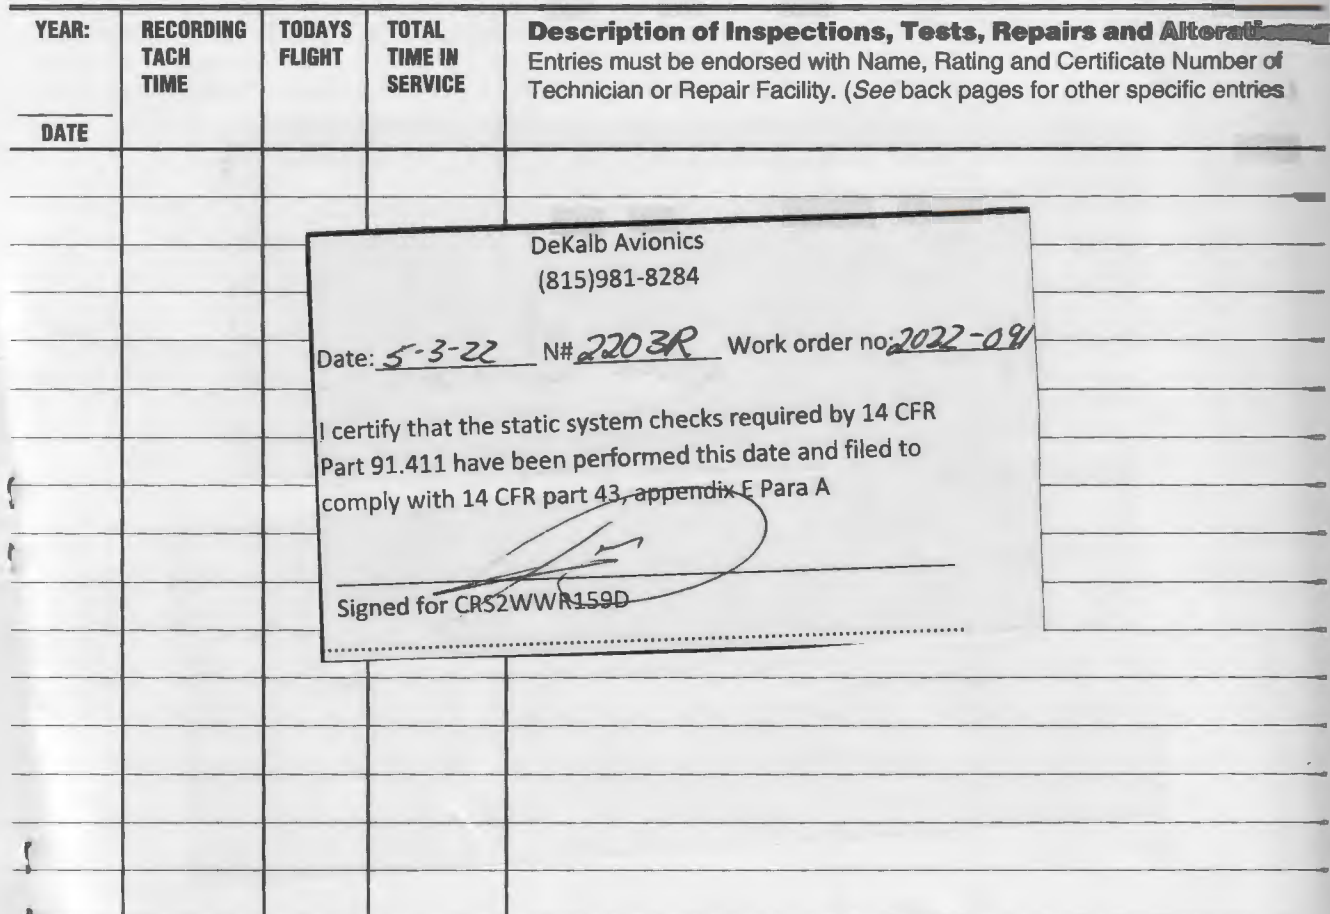 YEAR:
DATE
RECORDING
TACH
TIME
TODAYS
FLIGHT
TOTAL
TIME IN
SERVICE
Description of Inspections, Tests, Repairs and
Entries must be endorsed with Name, Rating and Certificate Number of
Technician or Repair Facility. (See back pages for other specific entries
DeKalb Avionics
(815)981-8284
Date: 5-3-22 N# 2203R Work order no: 2022-091
I certify that the static system checks required by 14 CFR
Part 91.411 have been performed this date and filed to
comply with 14 CFR part 43, appendix E Para A
Signed for CRS2WWR159D